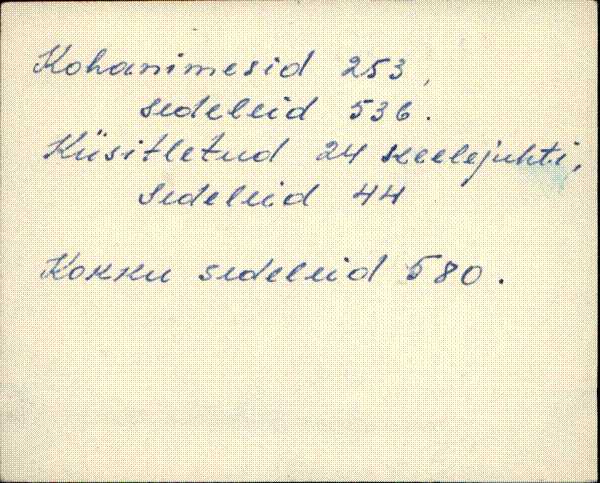 Kohanimesid 253,
sedeleid 536.
Küsitletud 24 keelejuhti,
sedeleid 44
Kokku sedeleid 580.